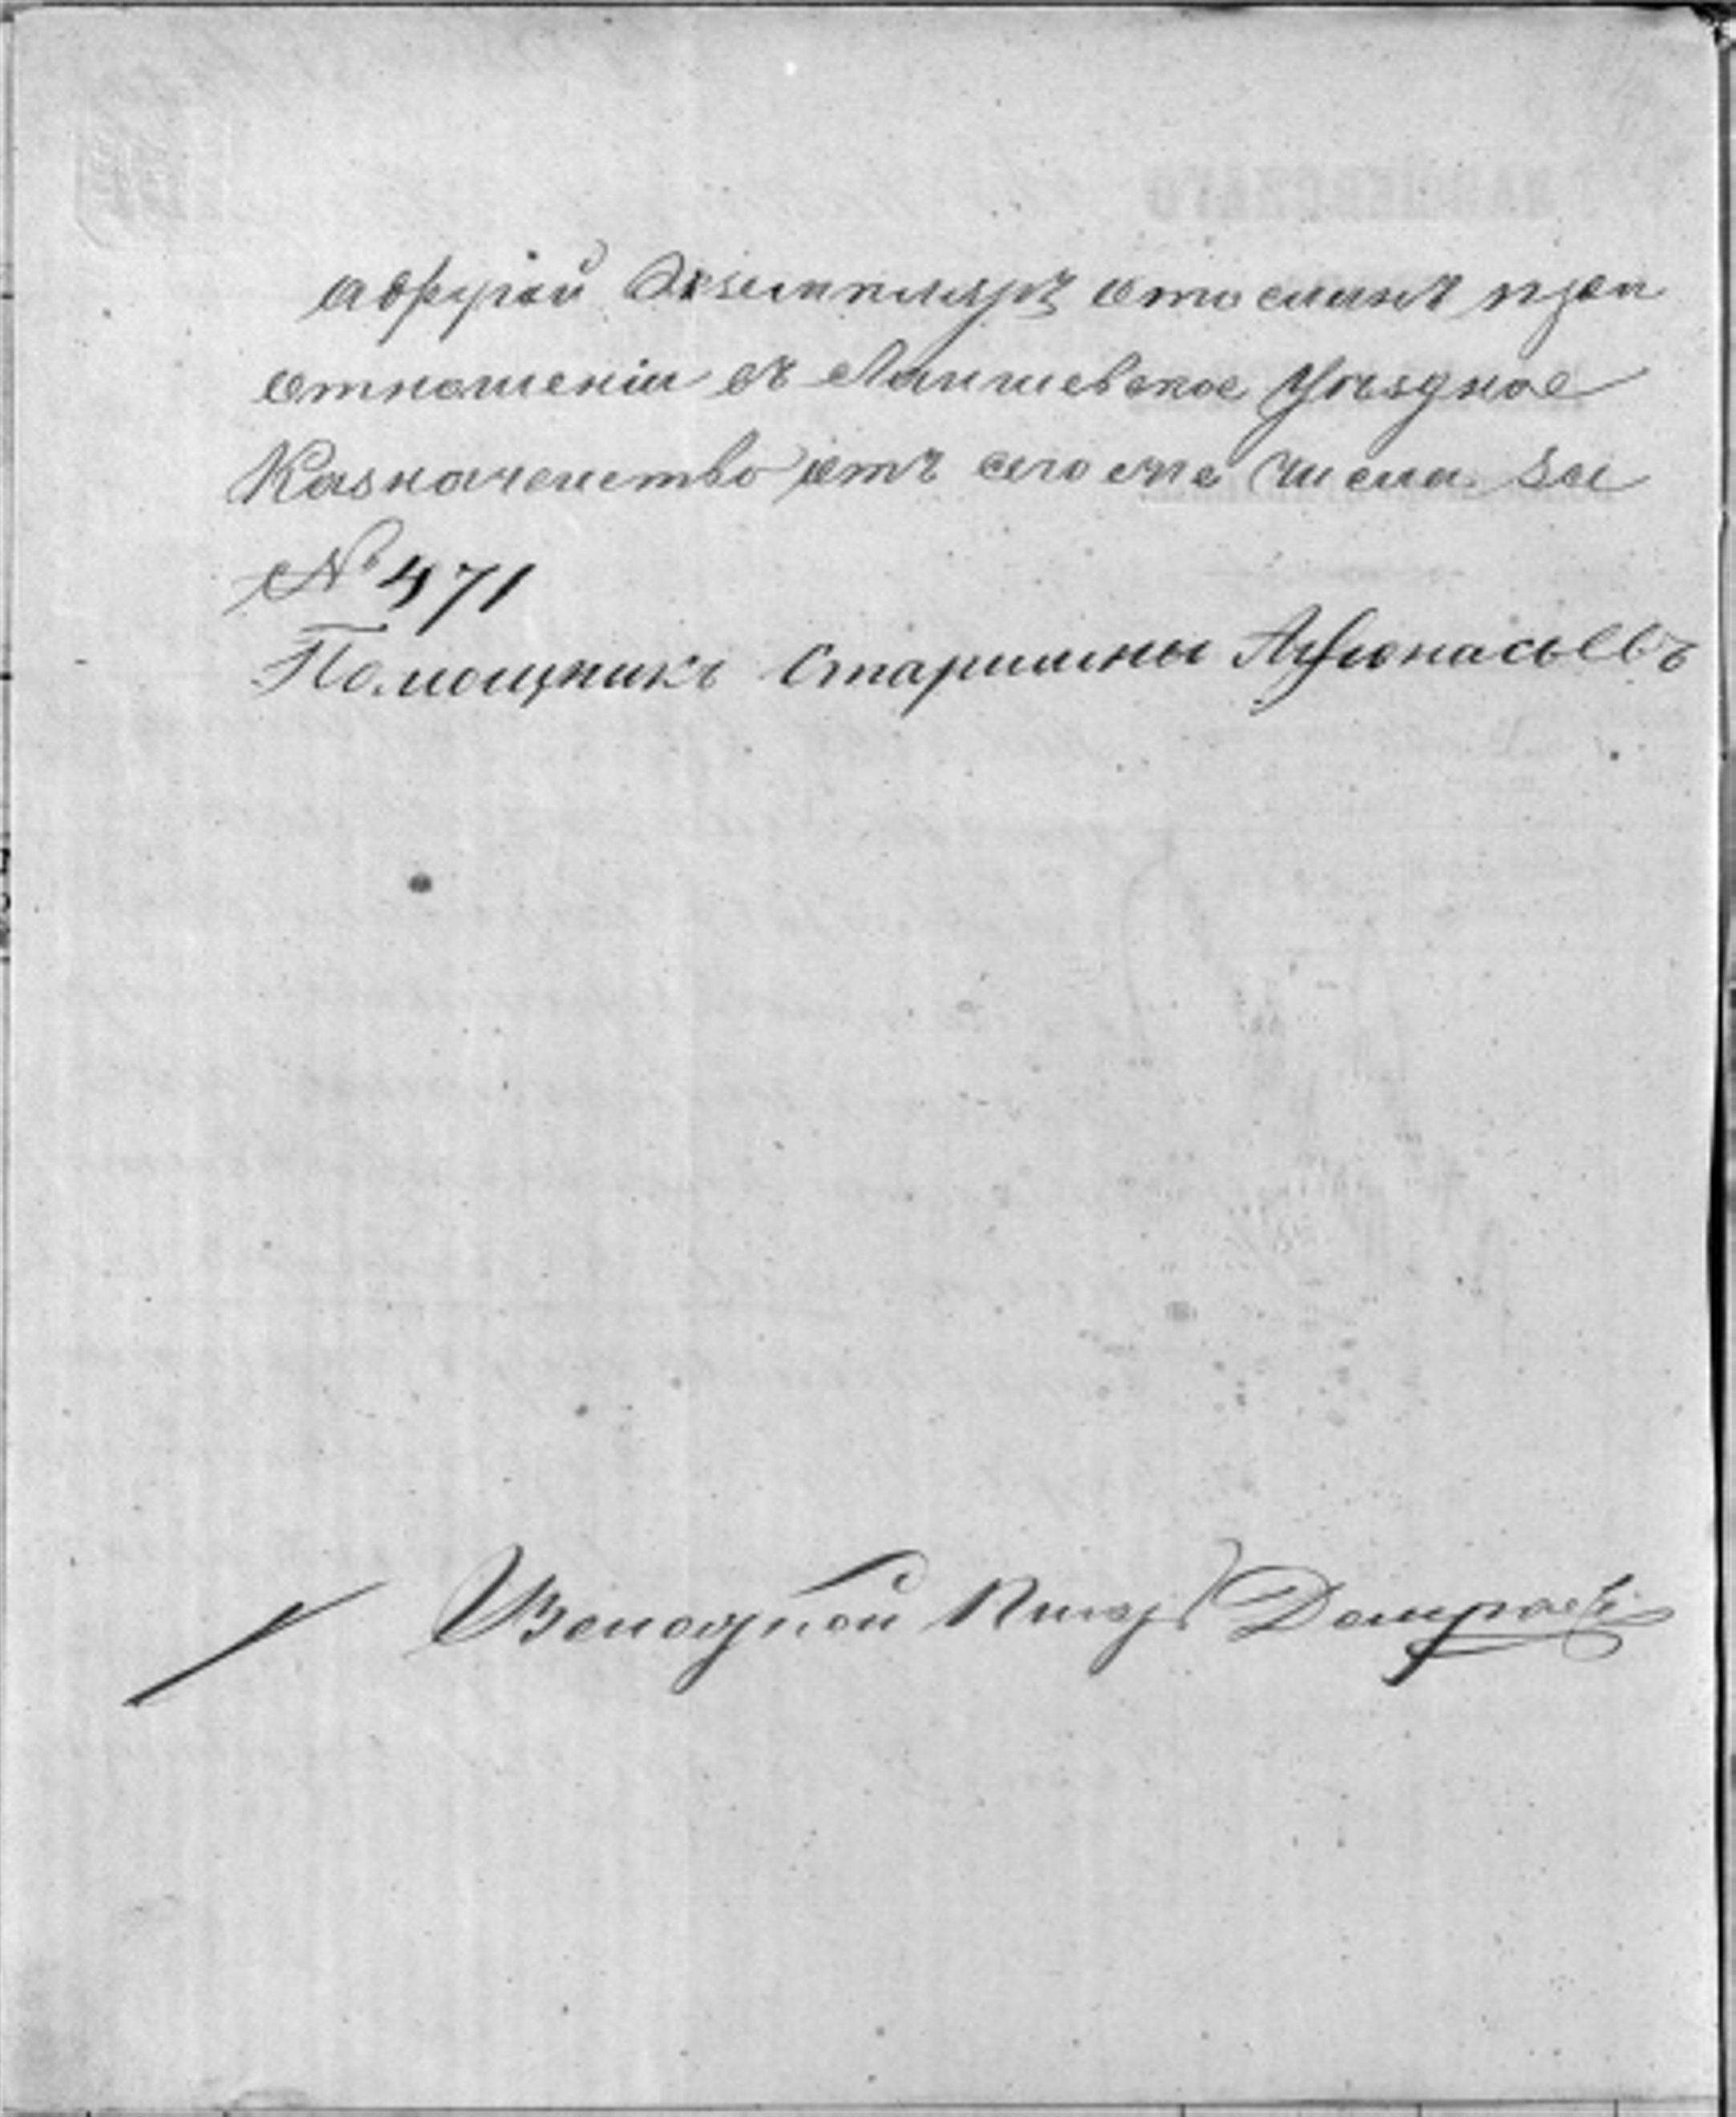 а другой Экземпляръ отосланъ при
отношеніи въ Лаишевское Уѣздное
Казначейство отъ сего же числа за
№ 471
Помощникъ Старшины Афонасьевъ
Волостной Писарь